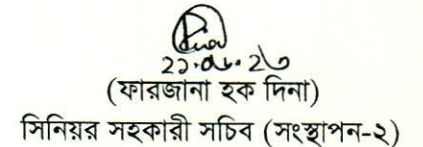 (ফারজানা হক দিনা)
সিনিয়র সহকারী সচিব (সংস্থাপন-২)